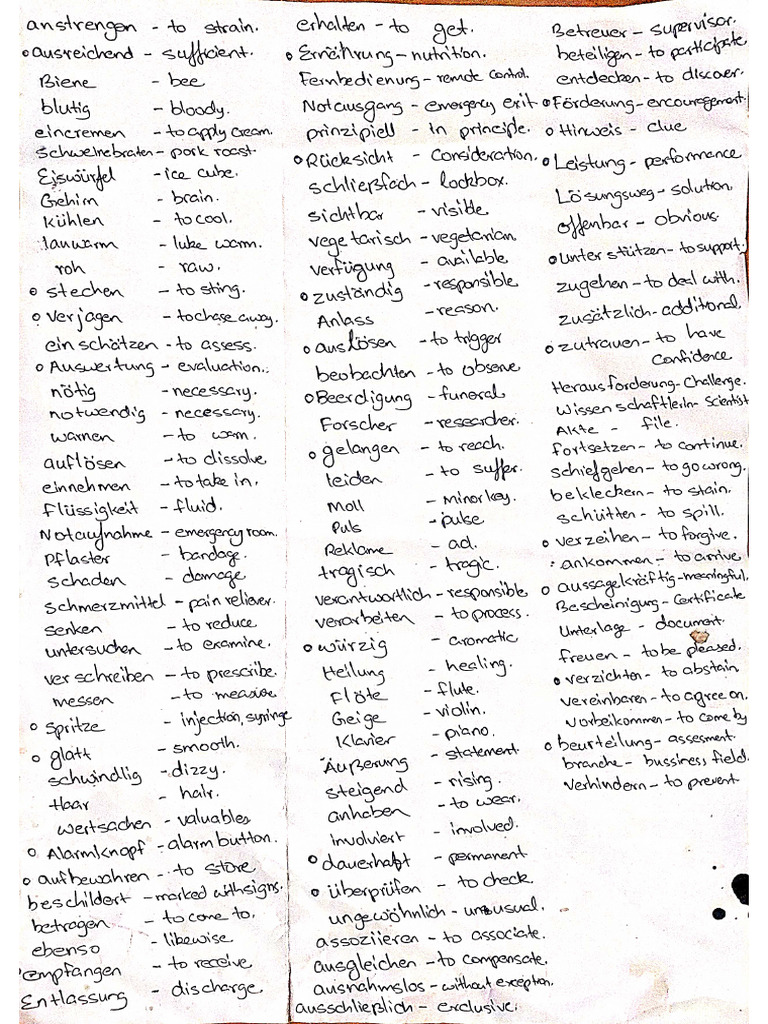 anstrengen - to strain.
ausreichend - sufficient.
Biene - bee
blutig - bloody.
eincremen - to apply cream.
Schweinebraten - pork roast.
Eiswürfel - ice cube.
Gehirn - brain.
kühlen - to cool.
lauwarm - luke warm.
roh - raw.
stechen - to sting.
verjagen - to chase away.
einschätzen - to assess.
Auswertung - evaluation.
nötig - necessary.
notwendig - necessary.
warnen - to warn.
auflösen - to dissolve
einnehmen - to take in.
Flüssigkeit - fluid.
Notaufnahme - emergency room.
Pflaster - bandage.
schaden - damage
schmerzmittel - pain reliever.
senken - to reduce
untersuchen - to examine.
verschreiben - to prescribe.
messen - to measure
spritze - injection, syringe
glatt - smooth.
schwindlig - dizzy.
Haar - hair.
wertsachen - valuables
Alarmknopf - alarm button.
aufbewahren - to store
beschildert - marked with signs.
betragen - to come to.
ebenso - likewise
empfangen - to receive
Entlassung - discharge.
erhalten - to get.
Ernährung - nutrition.
Fernbedienung - remote control.
Notausgang - emergency exit
prinzipiell - in principle.
Rücksicht - consideration.
schließfach - lockbox.
sichtbar - visible
vegetarisch - vegetarian.
verfügung - available
zuständig - responsible
Anlass - reason.
auslösen - to trigger
beobachten - to observe
Beerdigung - funeral
Forscher - researcher.
gelangen - to reach.
leiden - to suffer.
Moll - minor key.
Puls - pulse
Reklame - ad.
tragisch - tragic.
verantwortlich - responsible
verarbeiten - to process.
würzig - aromatic
Heilung - healing.
Flöte - flute.
Geige - violin.
Klavier - piano.
Äußerung - statement
steigend - rising.
anhaben - to wear.
involviert - involved.
dauerhaft - permanent
überprüfen - to check.
ungewöhnlich - unusual.
assoziieren - to associate.
ausgleichen - to compensate.
ausnahmslos - without exception.
ausschließlich - exclusive.
Betreuer - supervisor.
beteiligen - to participate
entdecken - to discover.
Förderung - encouragement.
Hinweis - clue
Leistung - performance
Lösungsweg - solution.
offenbar - obvious.
unterstützen - to support.
zugehen - to deal with.
zusätzlich - additional
zutrauen - to have
confidence
Herausforderung - Challenge.
WissenschaftlerIn - Scientist
Akte - file.
fortsetzen - to continue.
schiefgehen - to go wrong.
beklecken - to stain.
schütten - to spill.
verzeihen - to forgive.
ankommen - to arrive
aussagekräftig - meaningful.
Bescheinigung - Certificate
Unterlage - document.
freuen - to be pleased.
verzichten - to abstain
vereinbaren - to agree on.
vorbeikommen - to come by
beurteilung - assesment.
branche - bussiness field.
verhindern - to prevent